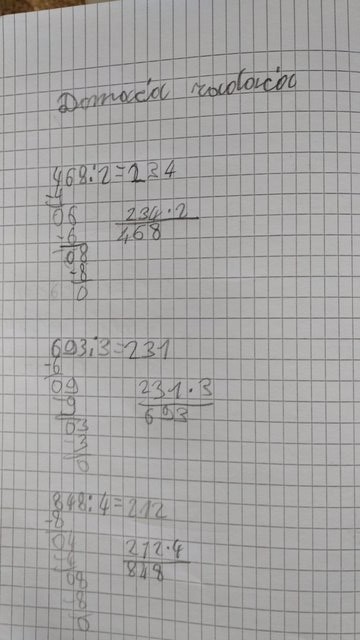 Domaća zadaća
468:2=234
-4
06
-6
08
-8
0
234·2
468
693:3=231
-6
09
-9
03
-3
0
231·3
693
848:4=212
-8
04
-4
08
-8
0
212·4
848